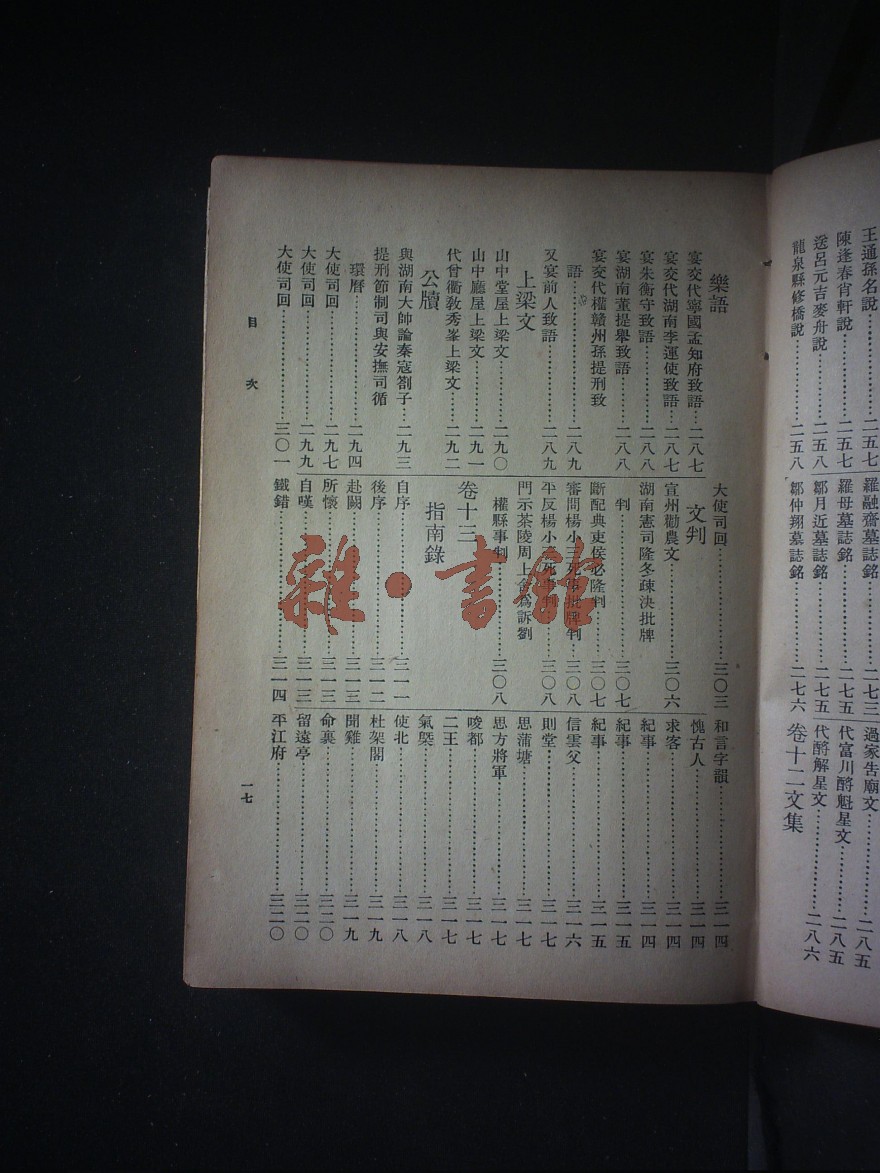 王通孫名說⋯⋯二五七
陳逢春肖軒說⋯⋯二五七
送呂元吉麥舟說⋯⋯二五八
龍泉縣修橋說⋯⋯二五八
羅融齋墓誌銘⋯⋯二七三
羅母墓誌銘⋯⋯二七五
鄒月近墓誌銘⋯⋯二七五
鄒仲翔墓誌銘⋯⋯二七六
過家告廟文⋯⋯二八五
代富川酹魁星文⋯⋯二八五
代酹解星文⋯⋯二八六
卷十二文集
樂語
宴交代寧國孟知府致語⋯⋯二八七
宴交代湖南李運使致語⋯⋯二八七
宴朱衡守致語⋯⋯二八八
宴湖南董提舉致語⋯⋯二八八
宴交代權贛州孫提刑致
語⋯⋯二八九
又宴前人致語⋯⋯二八九
上梁文
山中堂屋上梁文⋯⋯二九〇
山中廳屋上梁文⋯⋯二九一
代曾衢教秀峯上梁文⋯⋯二九二
公牘
與湖南大帥論秦寇劄子⋯⋯二九三
提刑節制司與安撫司循
環曆⋯⋯二九四
大使司回⋯⋯二九七
大使司回⋯⋯二九九
大使司回⋯⋯三〇一
大使司回⋯⋯三〇三
文判
宣州勸農文⋯⋯三〇六
湖南憲司隆冬疎決批牌
判⋯⋯三〇七
斷配典吏侯必隆判⋯⋯三〇七
審問楊小三死事批牌判⋯⋯三〇八
平反楊小三死事判⋯⋯三〇八
門示茶陵周上舍爲訴劉
權縣事判⋯⋯三〇八
卷十三
指南錄
自序⋯⋯三一一
後序⋯⋯三一二
赴闕⋯⋯三一三
所懷⋯⋯三一三
自嘆⋯⋯三一三
鐵錯⋯⋯三一四
和言字韻⋯⋯三一四
愧古人⋯⋯三一四
求客⋯⋯三一四
紀事⋯⋯三一四
紀事⋯⋯三一五
紀事⋯⋯三一五
信雲父⋯⋯三一六
則堂⋯⋯三一七
思蒲塘⋯⋯三一七
思方將軍⋯⋯三一七
唆都⋯⋯三一七
二王⋯⋯三一七
氣槩⋯⋯三一八
使北⋯⋯三一八
杜架閣⋯⋯三一九
聞雞⋯⋯三一九
命裏⋯⋯三二〇
留遠亭⋯⋯三二〇
平江府⋯⋯三二〇
目次
一七
雜·書館